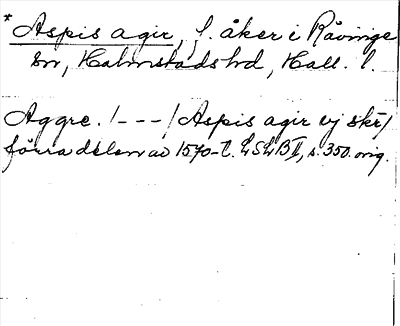 * Aspis agir, f. åker i Råvinge
sn, Halmstads hd, Hall. l.
Aggre. /---/ Aspis agir ej skr/
förra delen av 1570-t. LSLB II, s. 350. orig.